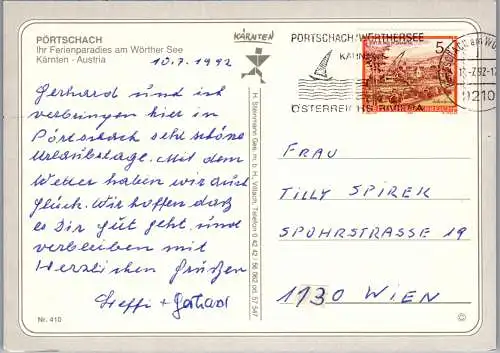 PÖRTSCHACH
Ihr Ferienparadies am Wörther See
Kärnten - Austria
10.7.1992
Gerhard und ich
verbringen hier in
Pörtschach sehr schöne
Urlaubstage. Mit dem
Wetter haben wir auch
Glück. Wir hoffen daß
es Dir gut geht und
verbleiben mit
Herzlichen Grüßen
Steffi + Gerhard
Nr. 410
KÄRNTEN
H. Steinmann Ges. m. b. H., Villach, Telefon 0 42 42 / 56 062 od. 57 547
PÖRTSCHACH/WÖRTHERSEE
KÄRNTEN
ÖSTERREICHS RIVIERA
5
9210
FRAU
TILLY SPIREK
SPUHRSTRASSE 19
1130 WIEN
©